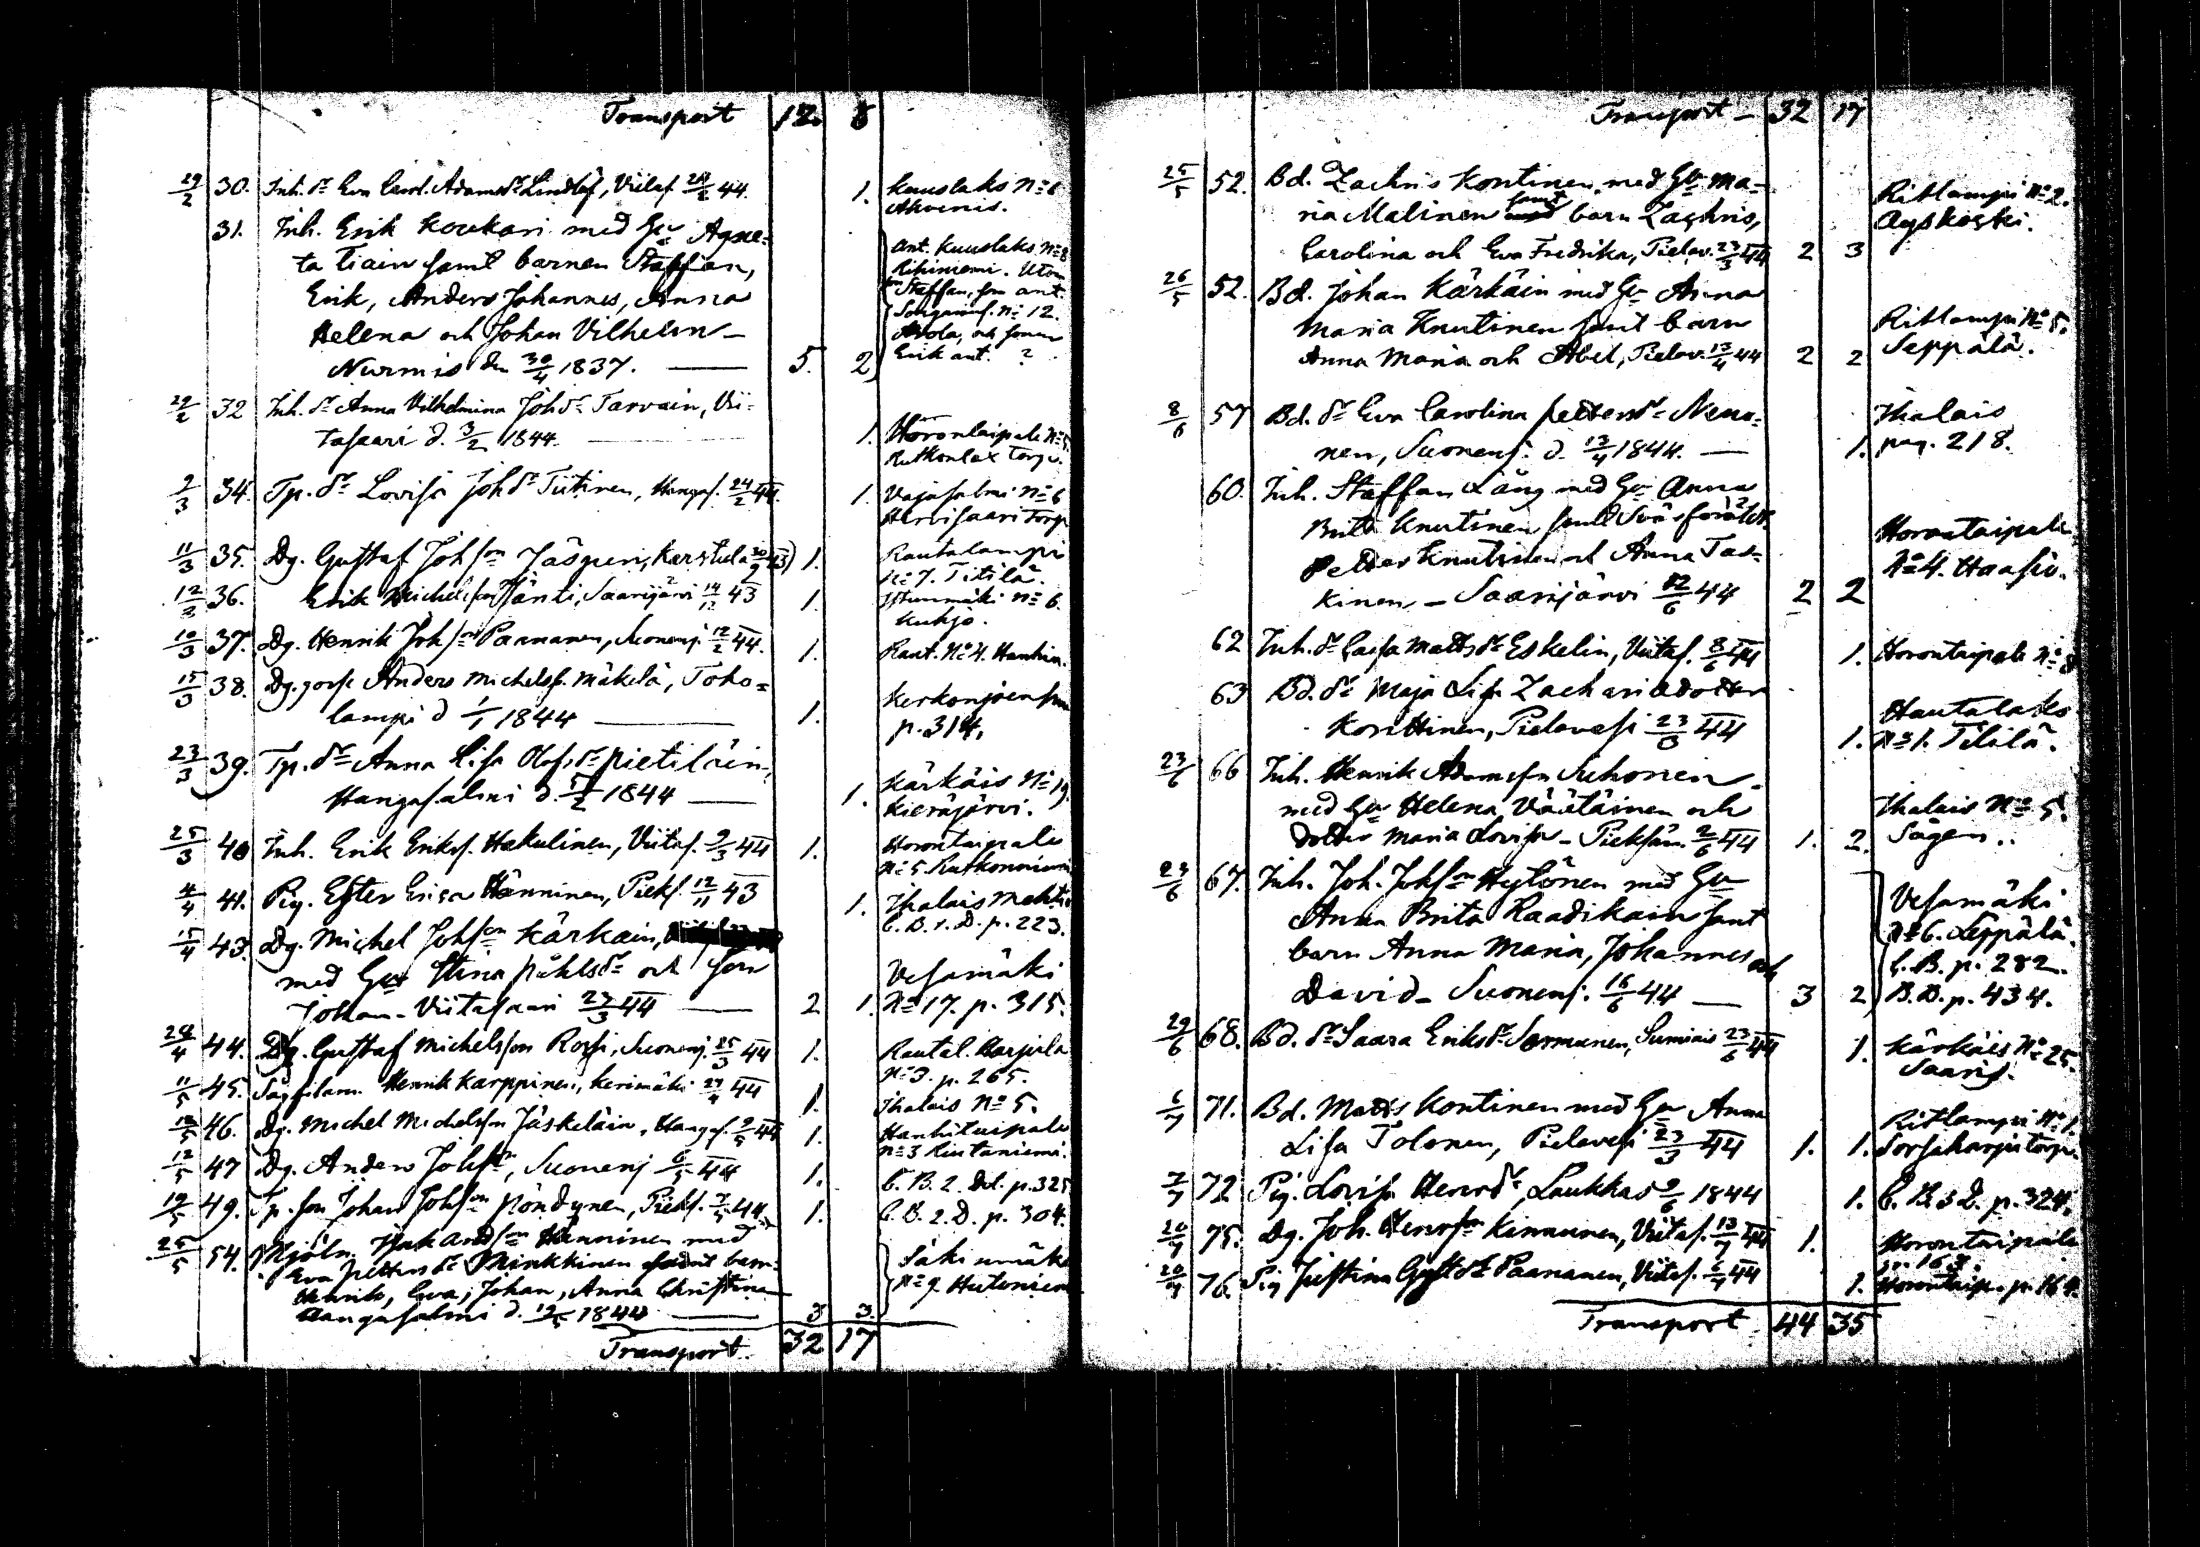 Transport 12. 8
29/2 30. Inh. dr Eva Carol. Adamsdr Lindlöf, Viitas. 28/2 44. 1. Kuuslaks No 6
Ahvenis.
31. Inh. Erik Koukari med Hu Agne-
ta Tiain samt barnen Staffan,
Erik, Anders Johannes, Anna
Helena och Johan Vilhelm –
Nurmis den 30/4 1837. — 5. 2
ant. Kuuslaks No 8
Rihiniemi. Utom
Staffan, som ant.
No 12.
och sonen
Erik ant. ?
29/2 32 Inh. dr Anna Vilhelmina Johdr Tarvain, Vii-
tasaari d. 3/2 1844. — 1. Horontaipale No 5
Rutkonlax Torp.
2/3 34. Tp. dr Lovisa Johdr Tiitinen, Hangas. 24/2 44. 1. Vajasalmi No 6
Hervisaari Torp
11/3 35. Dg. Gustaf Johsson Jäspen, Karstula 30/ 43) 1. Rautalampi
No 7. Titilä.
12/3 36. Erik Michelsson Jänti, Saarijärvi 14/12 43 1. Istunmäki No 6.
Kukjo.
10/3 37. Dg. Henrik Johsson Paananen, Suonenj. 12/2 44. 1. Raut. No 4. Hanhin.
15/3 38. Dg. goss Anders Michelss. Mäkelä, Toho-
lampi d 1/1 1844 — 1. Kerkonjoensuu
p. 314.
23/3 39. Tp. dr Anna Lisa Olofsdr Pietiläin,
Hangasalmi d. 5/2 1844 — 1. Kärkäis No 19.
Kieräjärvi.
25/3 40 Inh. Erik Erikss. Hakulinen, Viitas. 9/3 44 1. Horontaipale
No 5. Rutkonniemi
4/4 41. Pig. Ester Erica Hänninen, Pieks. 12/11 43 1. Ihalais
C. B. 1. D. p. 223.
15/4 43. Dg. Michel Johsson Kärkäin,
med Hu Stina Påhlsdr och son
Johan – Viitasaari 23/3 44 — 2 1. Vesamäki
No 17. p. 315.
28/4 44. Dg. Gustaf Michelsson Rossi, Suonenj. 25/3 44 1. Rautal. Harjula
No 3. p. 265.
11/5 45. Henrik Karppinen, Kerimäki 27/4 44 1. Ihalais No 5.
12/5 46. Dg. Michel Michelsson Jäskeläin, Hangas. 9/5 44 1. Hanhitaipale
No 3 Rintaniemi.
12/5 47 Dg. Anders Johsson, Suonenj 6/5 44 1. C. B. 2. Del. p. 325
19/5 49. Tp. son Johan Johsson Pöndynen, Pieks. 7/5 44. 1. C. B. 2. D. p. 304.
25/5 54. Mjöln. Isak Andsson Hänninen med
Eva Pettersdr Minkkinen samt barn
Henrik, Eva, Johan, Anna Christina
Hangasalmi d. 12/5 1844 — 3 3.
No 9 Hietoniem
Transport. 32 17
Transport – 32 17
25/5 52. Bd. Zachris Kontinen med Hu Ma-
ria Malinen samt barn Zachris,
Carolina och Eva Fredrika, Pielav. 23/3 44 2 3
Ritlampi No 2.
Äyskoski.
26/5 52. Bd. Johan Kärkäin med Hu Anna
Maria Knutinen samt barn
Anna Maria och Abel, Pielav. 13/4 44 2 2
Ritlampi No 5.
Seppälä.
8/6 57 Bd. dr Eva Carolina Pettersdr Neno-
nen, Suonenj. d. 13/4 1844. — 1.
Ihalais
pag. 218.
60. Inh. Staffan Lång med Hu Anna
Brita Knutinen samt Svärföräldr.
Petter Knutinen och Anna Tas-
kinen – Saarijärvi 12/6 44 2 2
Horontaipale
No 4. Haasio.
62 Inh. dr Caisa Mattsdr Eskelin, Viitas. 8/6 44 1. Horontaipale No 8
63 Bd. dr Maja Lisa Zachariædotter
Konttinen, Pielavesi 23/3 44 1.
Hautalaks
No 1. Tiililä.
23/6 66 Inh. Henrik Adamsson Suhonen
med Hu Helena Väätäinen och
dotter Maria Lovisa – Pieksäm. 2/6 44 1. 2.
Ihalais No 5.
Sågen..
23/6 67. Inh. Joh. Johsson Hytönen med Hu
Anna Brita Raadikain samt
barn Anna Maria, Johannes och
David – Suonenj. 16/6 44 — 3 2
Vesamäki
No 6. Leppälä.
C. B. p. 282.
B. B. p. 434.
29/6 68. Bd. dr Saara Eriksdr Sormunen, Sumiais 23/6 44 1. Kärkäis No 25.
Saaris.
6/7 71. Bd. Matts Kontinen med Hu Anna
Lisa Tolonen, Pielavesi 23/3 44 1. 1.
Ritlampi No 1.
Sorsaharju torp.
7/7 72 Pig. Lovisa Henrdr, Laukkas 9/6 1844 1. C. B. 3 D. p. 324.
20/7 75. Dg. Joh. Henrsson Kinnunen, Viitas. 13/7 44 1. Horontaipale
p. 163.
20/7 76. Pig Justina Gustdr Paananen, Viitas. 6/7 44 1. Horontaip. p. 164.
Transport 44 35